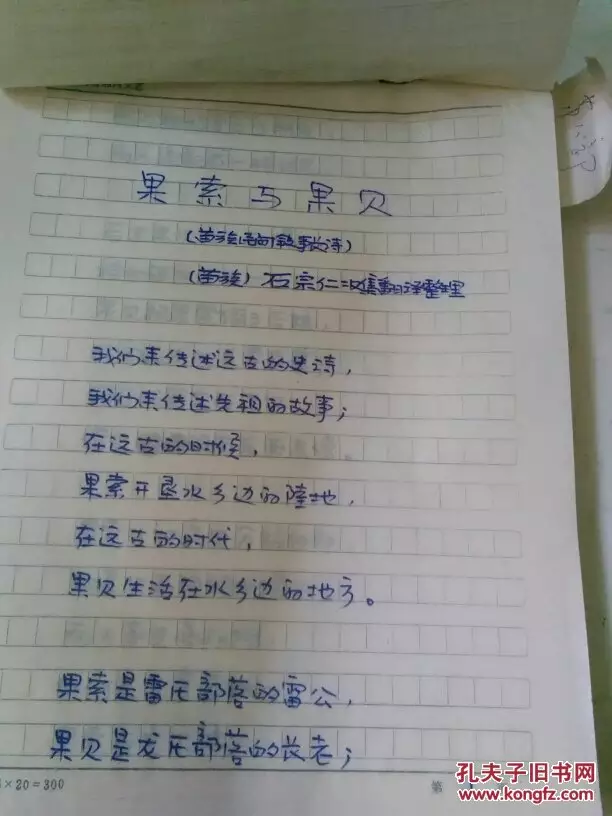 果索与果贝
(苗族古老叙事长诗)
(苗族) 石宗仁收集翻译整理
我们来传述远古的史诗,
我们来传述先祖的故事;
在远古的时候,
果索开垦水乡边的陆地,
在远古的时代,
果贝生活在水乡边的地方。
果索是雷氏部落的雷公,
果贝是龙氏部落的长老;
×20=300
第
孔夫子旧书网
www.kongfz.com